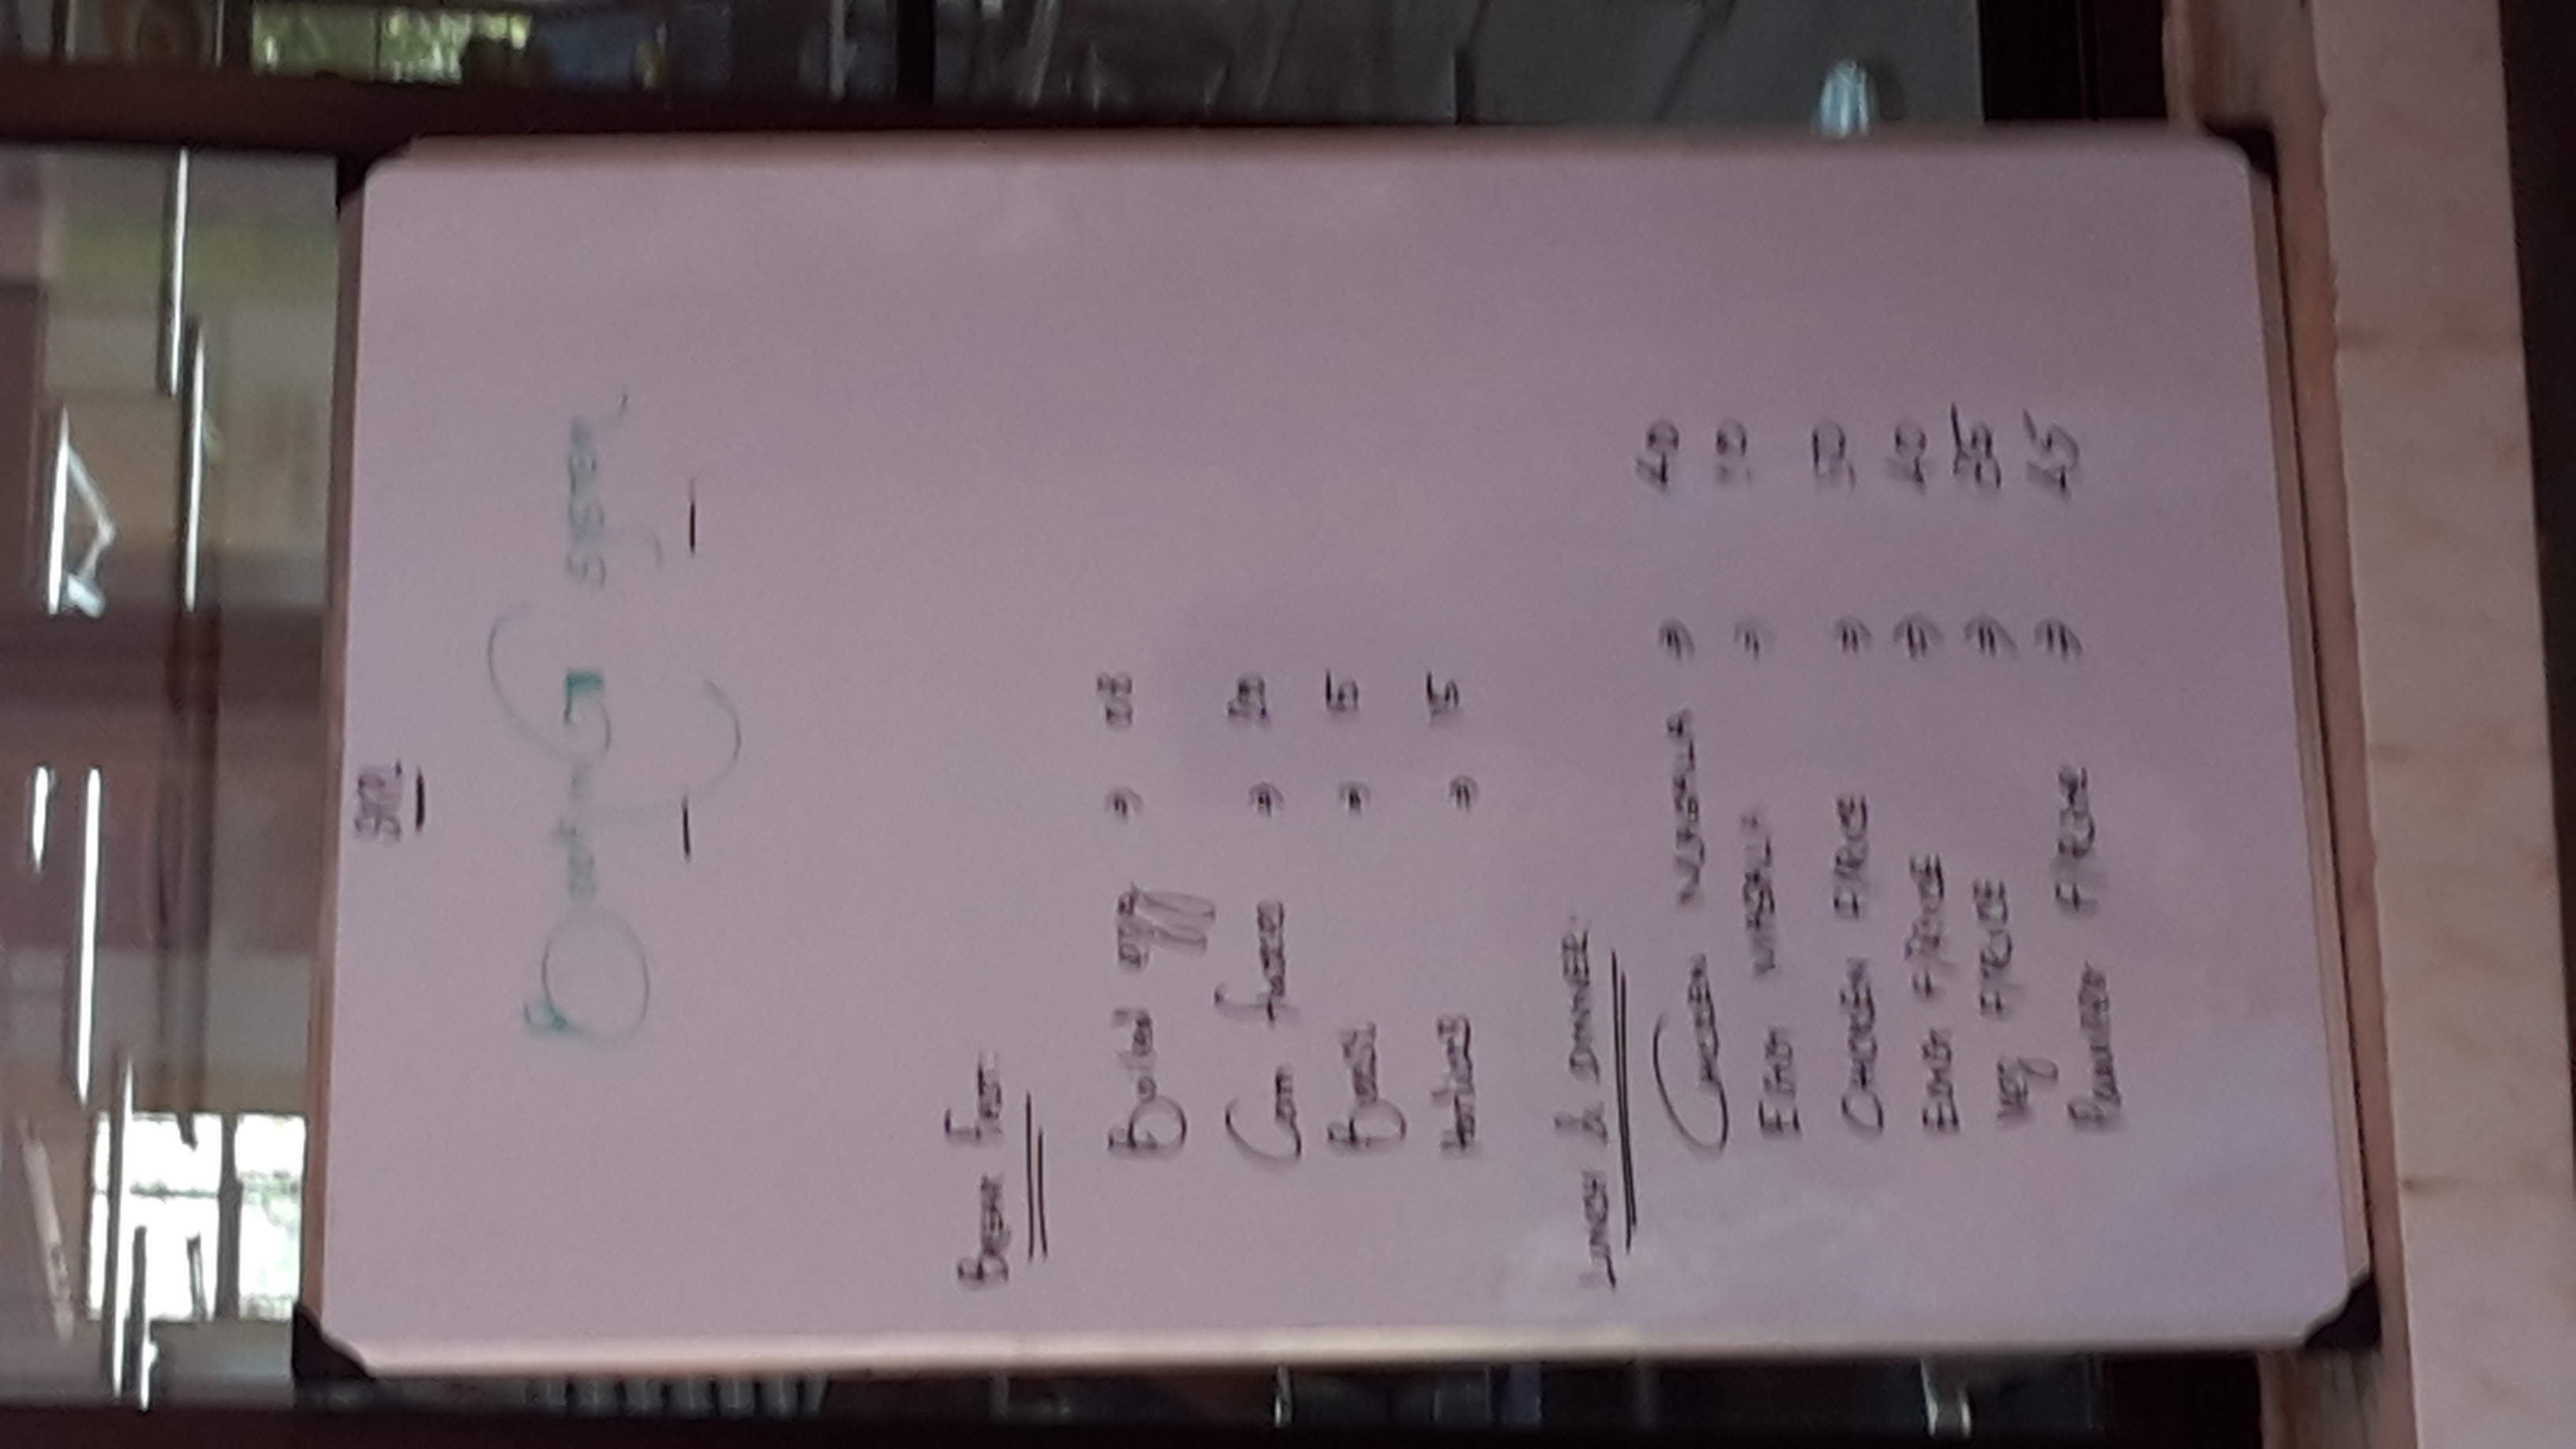 BookinG SYSTEM
BREAK FAST:
Boiled egg ⇒ 08
Corn flakes ⇒ 20
Boost ⇒ 15
Horlicks ⇒ 15
LUNCH & DINNER:
CHICKEN MASALLA ⇒ 40
EGG MASALLA ⇒ 10
CHICKEN F/RICE ⇒ 50
EGG F/RICE ⇒ 40
Veg F/RICE ⇒ 35
F/RICE ⇒ 45